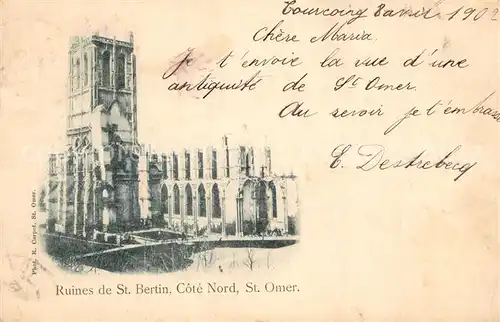 Tourcoing 8 avril 1902
Chère Maria.
Je t'envoie la vue d'une
antiquité de St Omer.
Au revoir je t'embrasse
E. Destrebecq
Phot. R. Carpot, St. Omer.
Ruines de St. Bertin, Côté Nord, St. Omer.